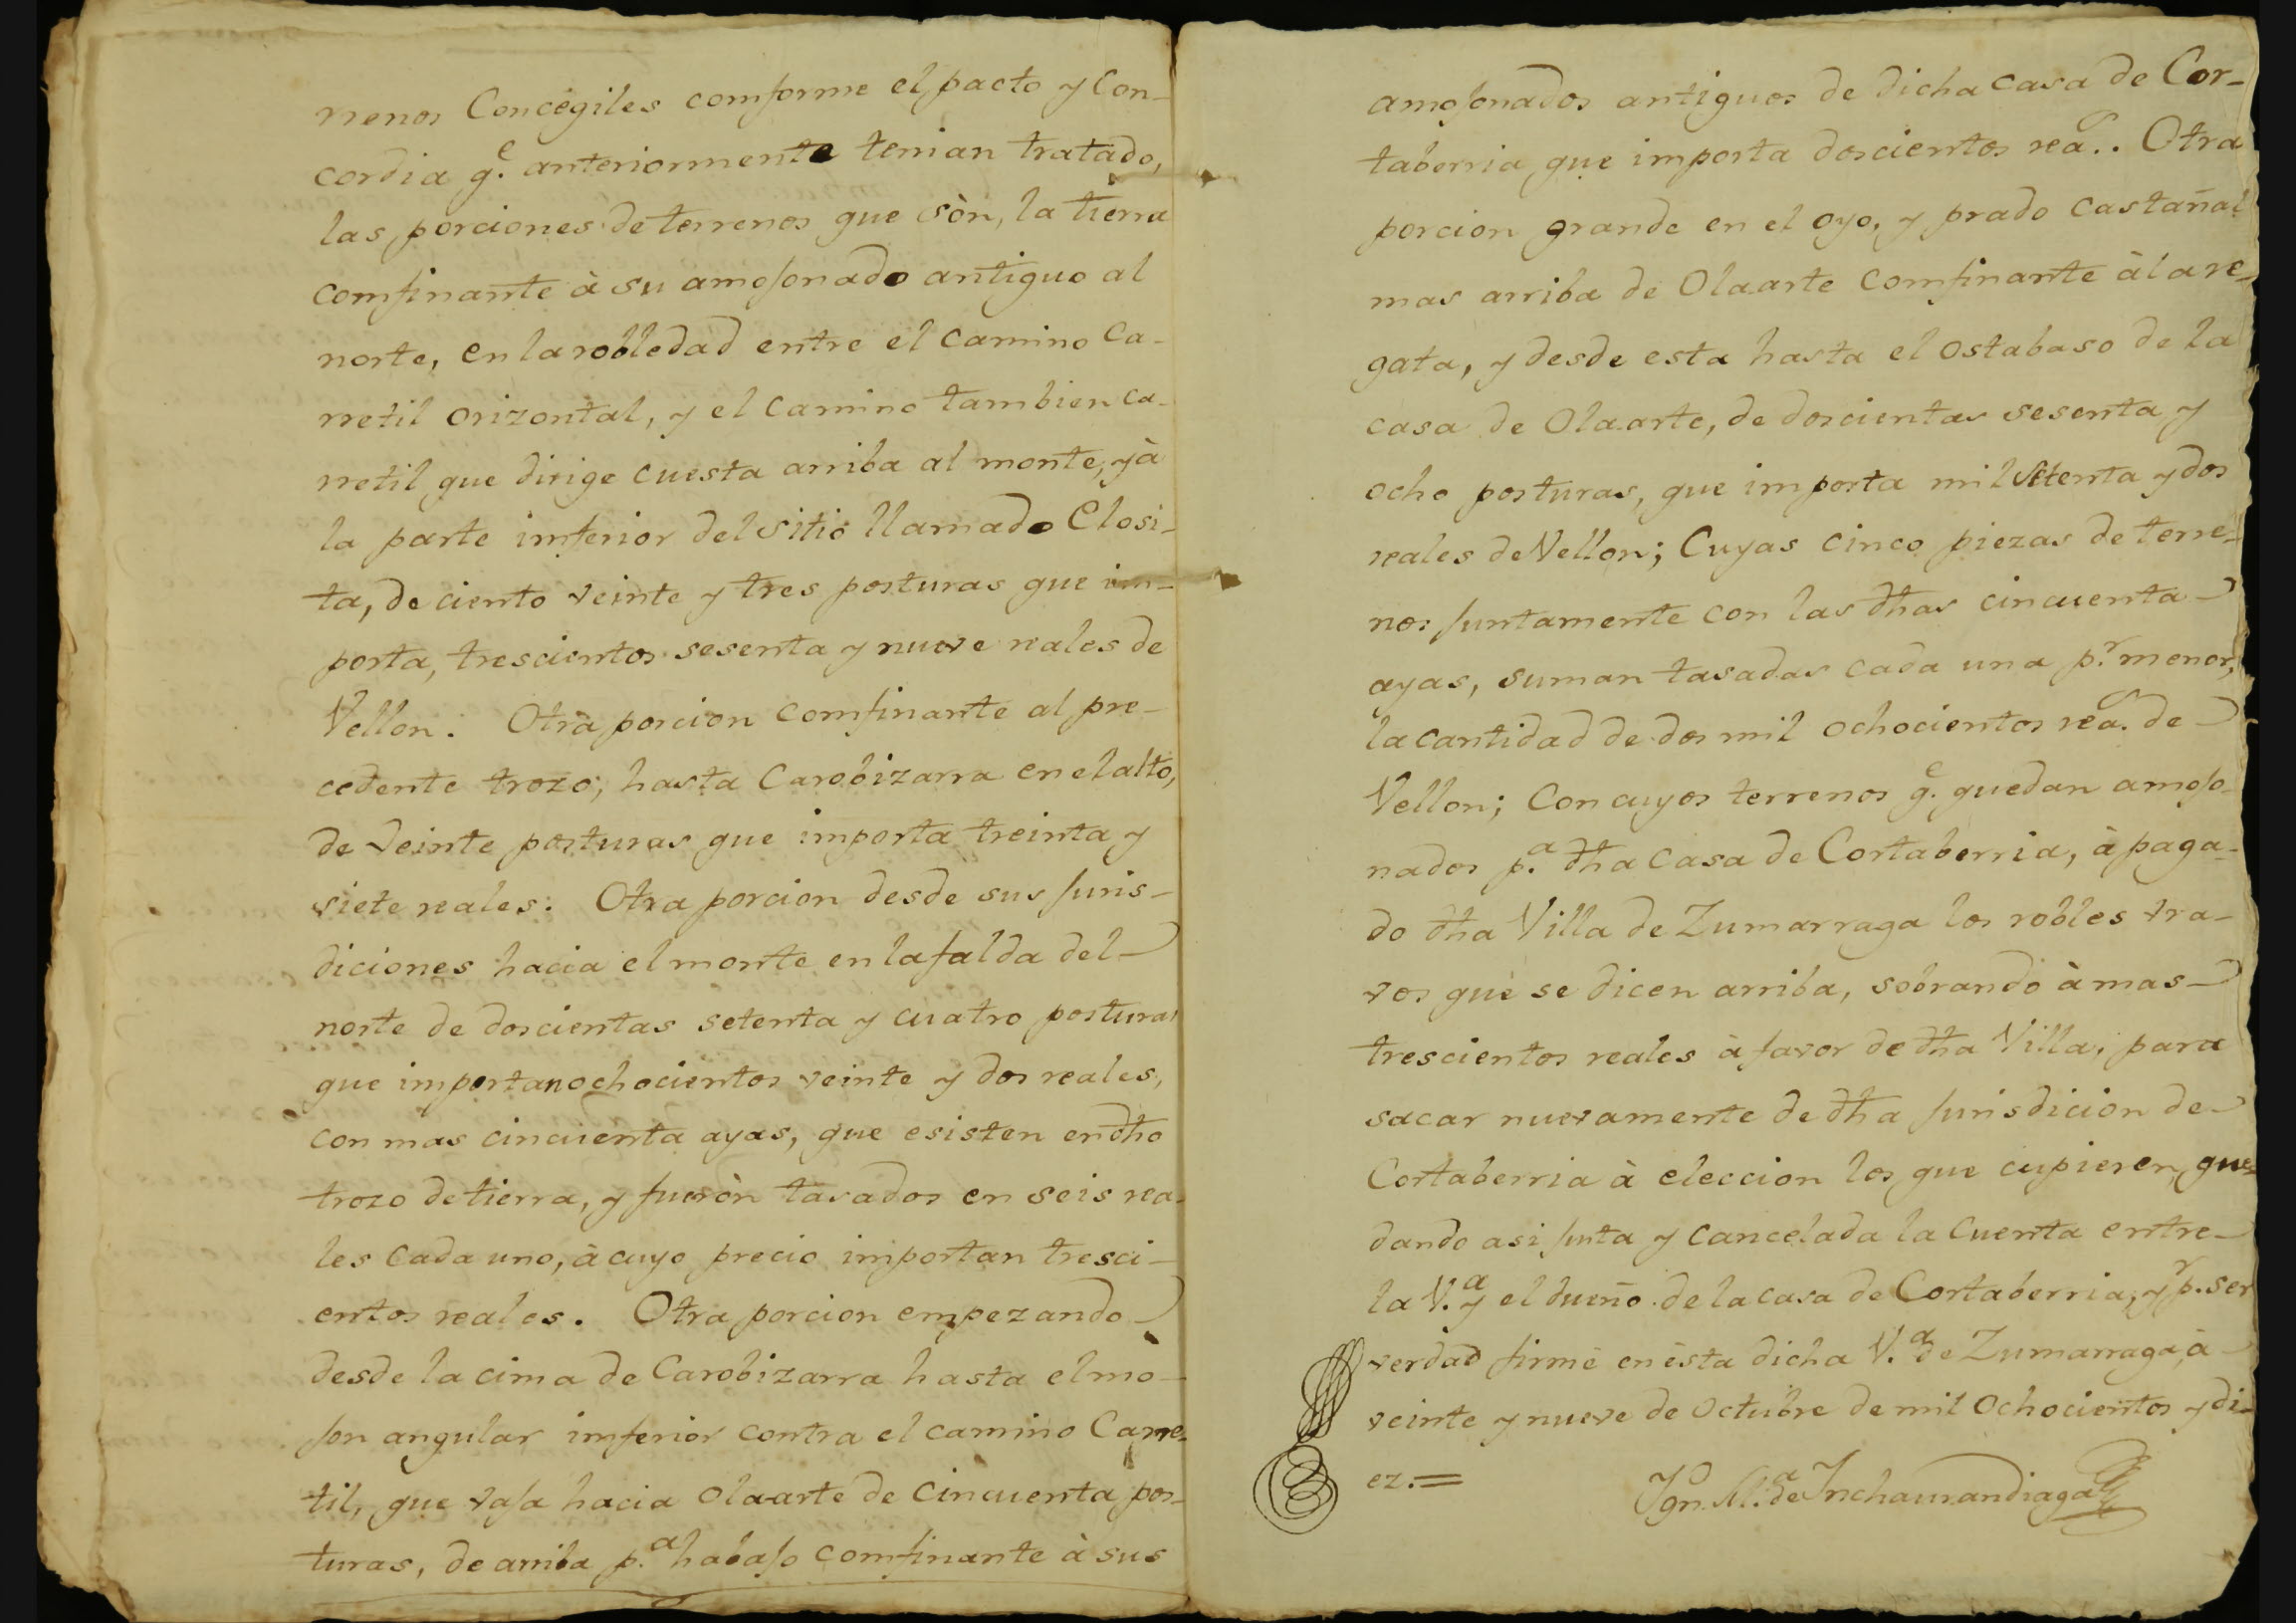 rrenos Concègiles comforme el pacto y Con-
cordia q.e anteriormente tenian tratado,
las porciones de terrenos que sòn, la tierra
comfinante à su amojonado antiguo al
norte, en la robledad entre el camino ca-
rretil orizontal, y el camino tambien ca-
rretil que dirige cuesta arriba al monte, y à
la parte imferior del sitio llamado Elosi-
ta, de ciento veinte y tres posturas que im-
porta, trescientos sesenta y nueve reales de
Vellon. Otra porcion comfinante al pre-
cedente trozo; hasta Carobizarra en el alto,
de veinte posturas que importa treinta y
siete reales. Otra porcion desde sus juris-
diciones hacia el monte en la falda del
norte de doscientas setenta y cuatro posturas
que importan ochocientos veinte y dos reales,
con mas cincuenta ayas, que esisten en dho
trozo de tierra, y fueròn tasados en seis rea-
les cada uno, à cuyo precio importan tresci-
entos reales. Otra porcion empezando
desde la cima de Carobizarra hasta el mo-
jon angular imferior contra el camino Carre-
til, que vaja hacia Olaarte de cincuenta pos-
turas, de arriba p.a habajo comfinante à sus
amojonados antiguos de dicha casa de Cor-
taberria, que importa doscientos rea.s. Otra
porcion grande en el oyo, y prado castañal
mas arriba de Olaarte comfinante à la re-
gata, y desde esta hasta el ostabaso de la
casa de Olaarte, de doscientas sesenta y
ocho posturas, que importa mil setenta y dos
reales de Vellon; Cuyas cinco piezas de terre-
nos juntamente con las dhas cincuenta
ayas, suman tasadas cada una p.r menor,
la cantidad de dos mil ochocientos rea.s de
Vellon; Con cuyos terrenos q.e quedan amojo-
nados p.a dha casa de Cortaberria, à paga-
do dha Villa de Zumarraga los robles bra-
vos que se dicen arriba, sobrando à mas
trescientos reales à favor de dha Villa, para
sacar nuevamente de dha jurisdicion de
Cortaberria à eleccion los que cupieren, que-
dando asi junta y cancelada la cuenta entre
la V.a y el dueño de la casa de Cortaberria, y p.r ser
verdad firmé en èsta dicha V.a de Zumarraga, à
veinte y nueve de octubre de mil ochocientos y di-
ez.=
Ygn. M.a de Inchaurrandiaga